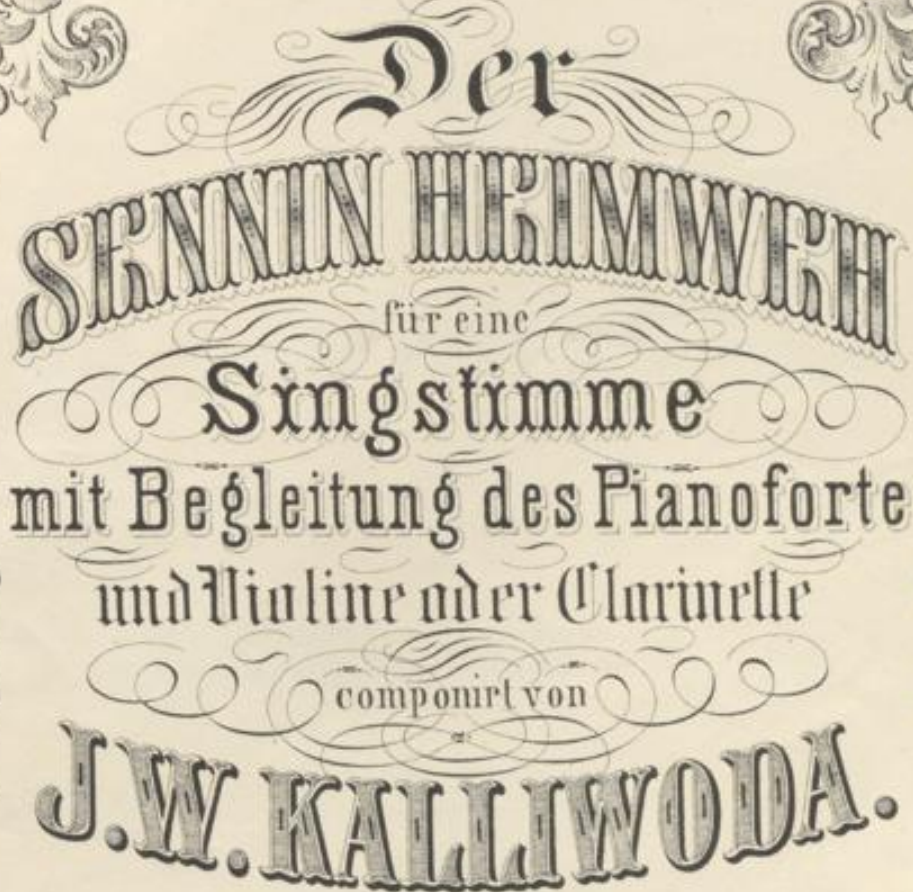 Der
SENNIN HEIMWEH
für eine
Singstimme
mit Begleitung des Pianoforte
und Violine oder Clarinette
componirt von
J.W. KALLIWODA.